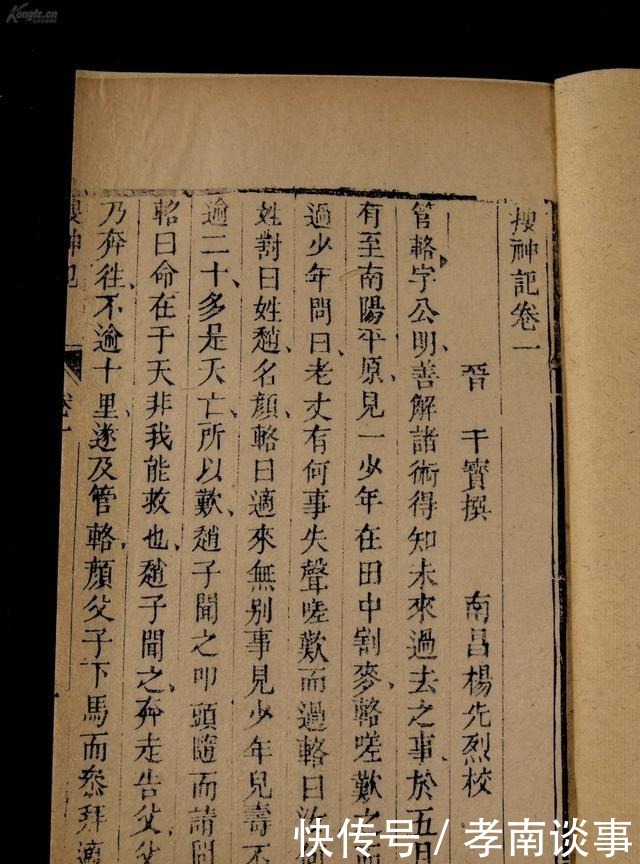 搜神記卷一
晉 干寶撰 南昌楊先烈校
管輅字公明善解諸術得知未來過去之事於五月
有至南陽平原見一少年在田中割麥輅嗟歎之
過少年問曰老丈有何事失聲嗟歎而過輅曰汝
姓對曰姓趙名顏輅曰適來無別事見少年兒壽不
逾二十多是夭亡所以歎趙子聞之叩頭隨而請問
輅曰命在于天非我能救也趙子聞之奔走告父父
乃奔往不逾十里遂及管輅顏父子下馬而叅拜適
搜神記
卷一
Kongfz.cn
快传号/孝南谈事